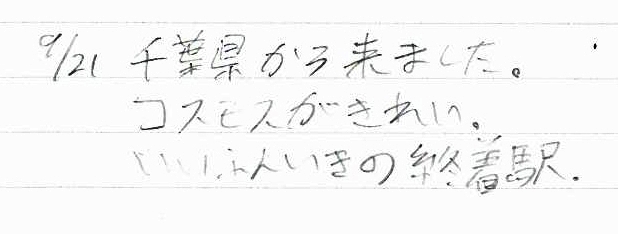 9/21 千葉県から来ました。
コスモスがきれい。
いいふんいきの終着駅.